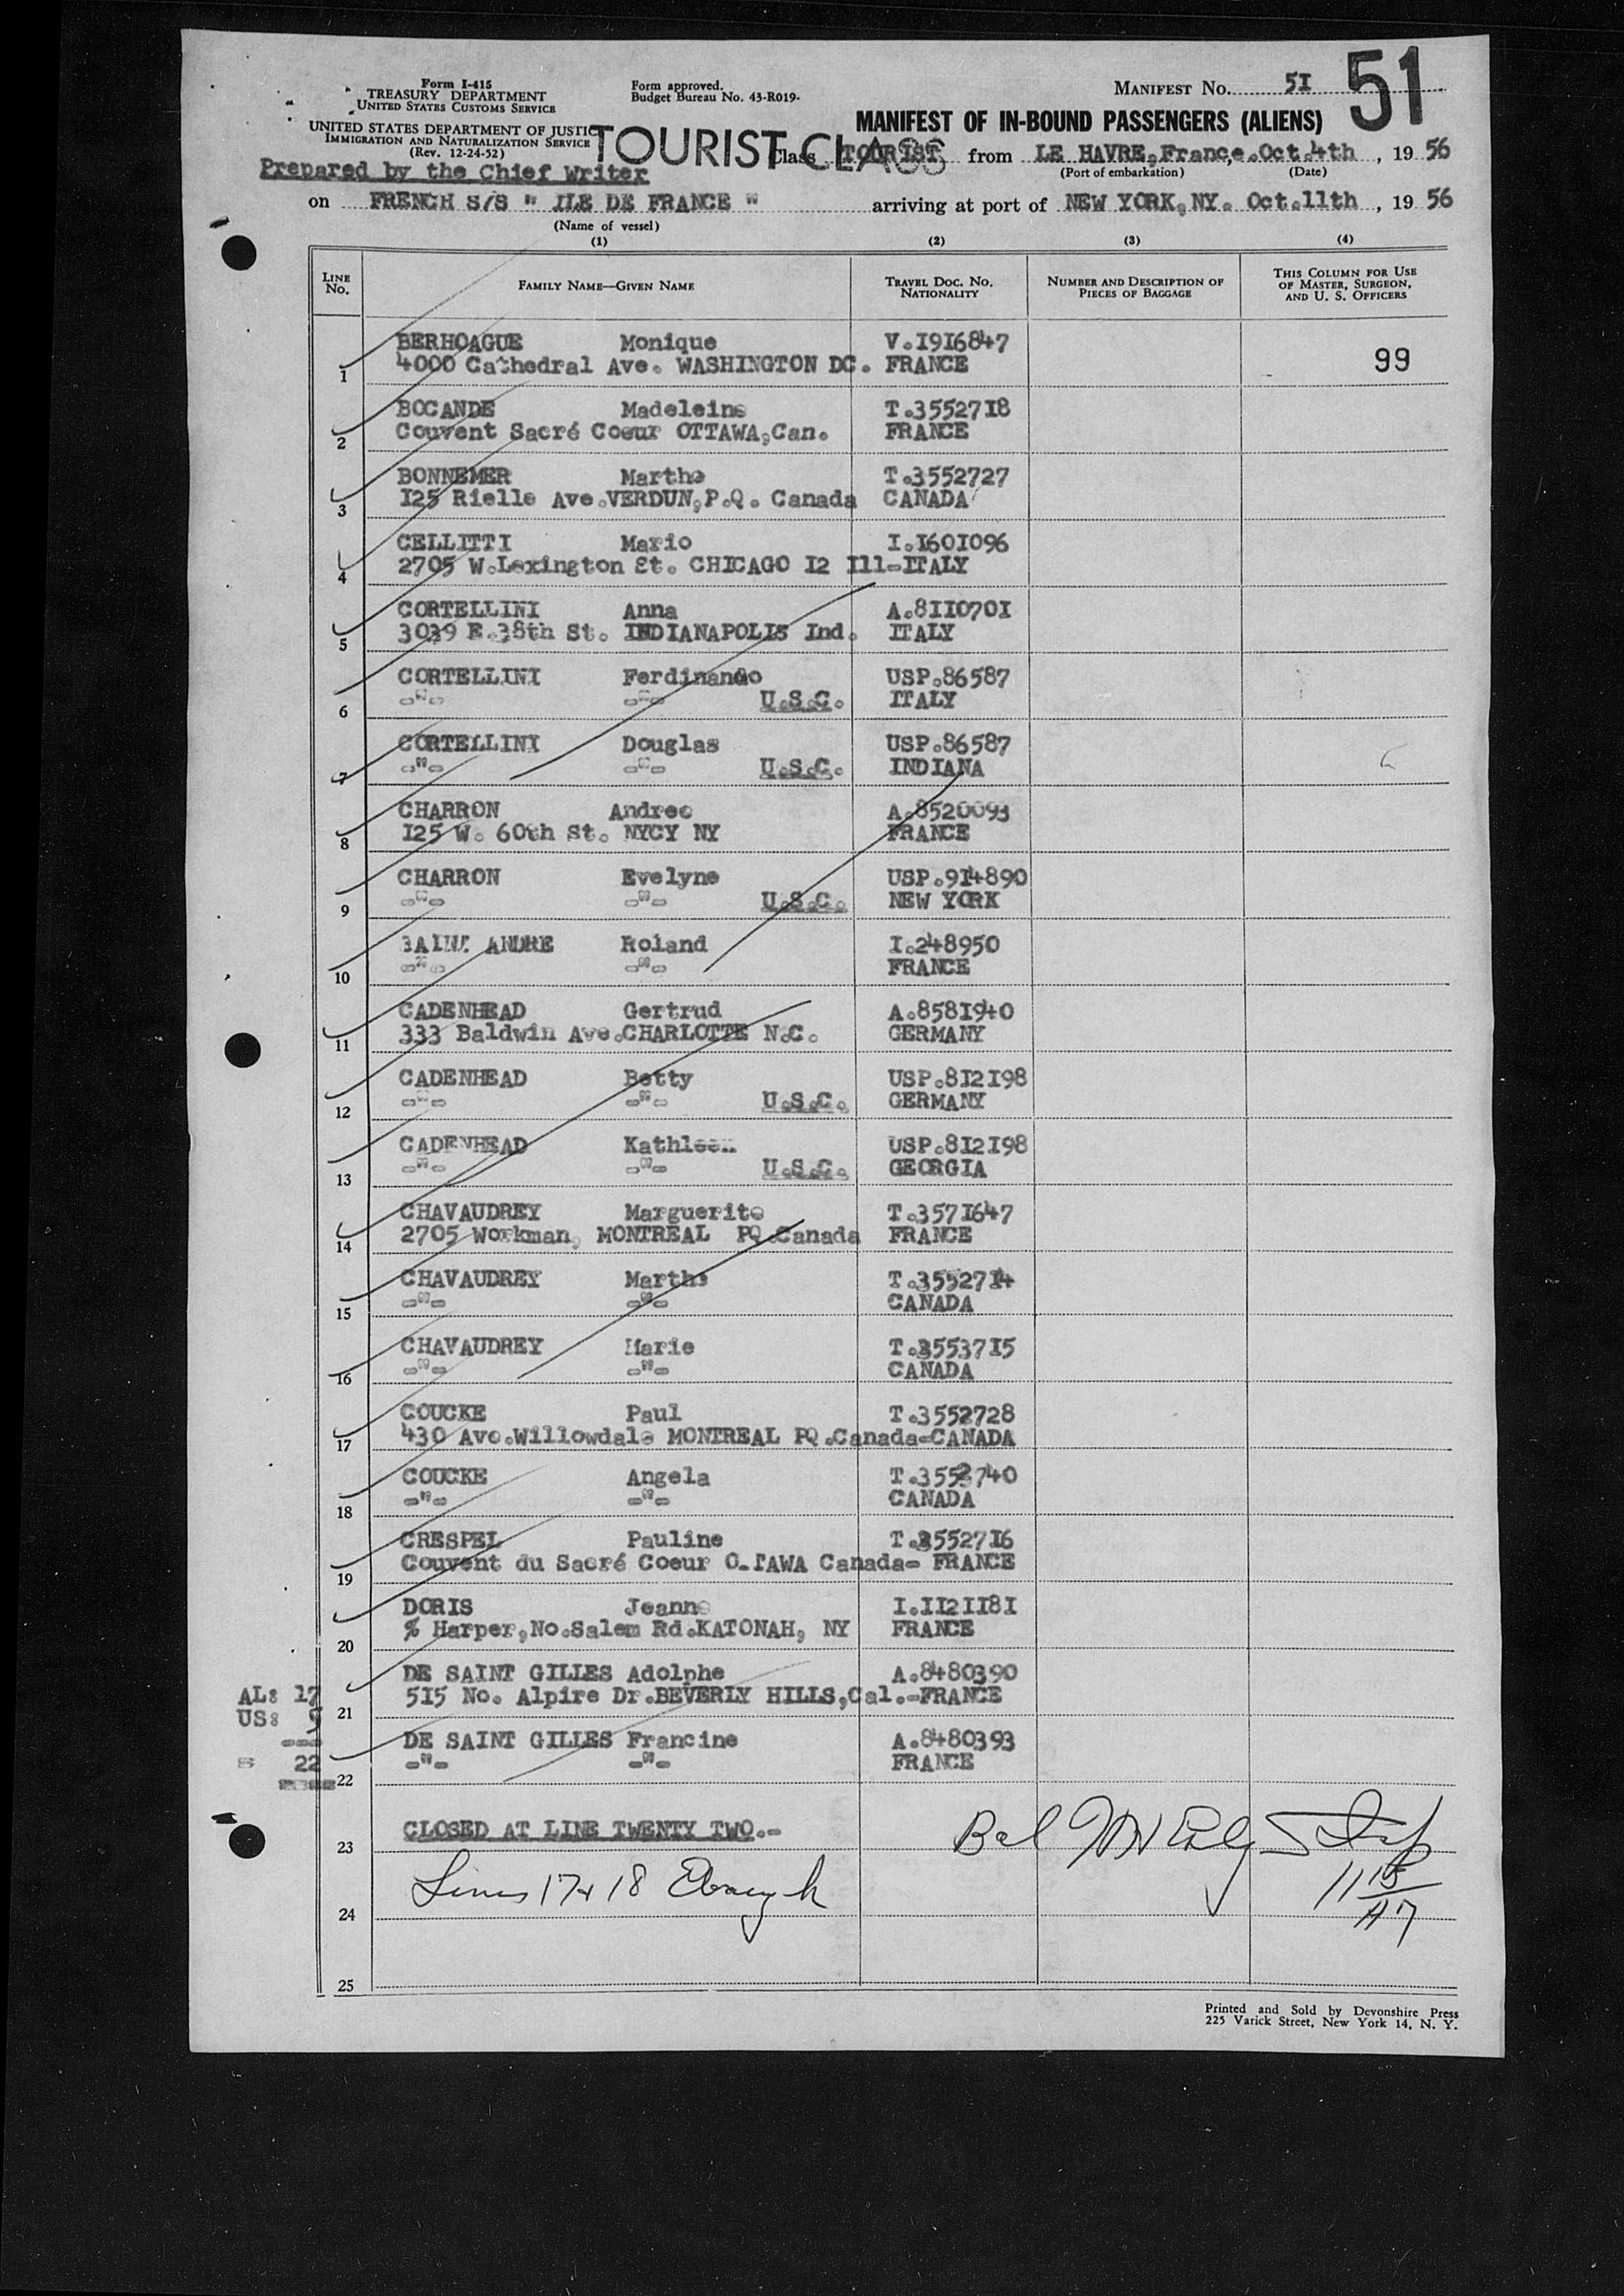 Form I-415
TREASURY DEPARTMENT
UNITED STATES CUSTOMS SERVICE
UNITED STATES DEPARTMENT OF JUSTICE
IMMIGRATION AND NATURALIZATION SERVICE
(Rev. 12-24-52)
Form approved.
Budget Bureau No. 43-R019-
MANIFEST No. 5I
51
MANIFEST OF IN-BOUND PASSENGERS (ALIENS)
TOURIST CLASS
Prepared by the Chief Writer
Class TOURIST from LE HAVRE, France, Oct. 4th, 1956
(Port of embarkation) (Date)
on FRENCH S/S " ILE DE FRANCE " arriving at port of NEW YORK, NY. Oct. IIth, 1956
(Name of vessel)
(1) (2) (3) (4)
LINE No. FAMILY NAME—GIVEN NAME TRAVEL DOC. NO. NATIONALITY NUMBER AND DESCRIPTION OF PIECES OF BAGGAGE THIS COLUMN FOR USE OF MASTER, SURGEON, AND U. S. OFFICERS
BERHOAGUE Monique V.I9I6847
1 4000 Cathedral Ave. WASHINGTON DC. FRANCE 99
BOCANDE Madeleine T.35527I8
2 Couvent Sacré Coeur OTTAWA,Can. FRANCE
BONNEMER Marthe T.3552727
3 I25 Rielle Ave.VERDUN,P.Q. Canada CANADA
CELLITTI Mario I.I60I096
4 2705 W.Lexington St. CHICAGO I2 Ill-ITALY
CORTELLINI Anna A.8II070I
5 3039 E.38th St. INDIANAPOLIS Ind. ITALY
CORTELLINI Ferdinando USP.86587
6 -"- -"- U.S.C. ITALY
CORTELLINI Douglas USP.86587
7 -"- -"- U.S.C. INDIANA
CHARRON Andree A.8520093
8 I25 W. 60th St. NYCY NY FRANCE
CHARRON Evelyne USP.9I4890
9 -"- -"- U.S.C. NEW YORK
SAINT ANDRE Roland I.248950
10 -"- -"- FRANCE
CADENHEAD Gertrud A.858I940
11 333 Baldwin Ave.CHARLOTTE N.C. GERMANY
CADENHEAD Betty USP.8I2I98
12 -"- -"- U.S.C. GERMANY
CADENHEAD Kathleen USP.8I2I98
13 -"- -"- U.S.C. GEORGIA
CHAVAUDREY Marguerite T.357I647
14 2705 Workman, MONTREAL PQ.Canada FRANCE
CHAVAUDREY Marthe T.35527I4
15 -"- -"- CANADA
CHAVAUDREY Marie T.35537I5
16 -"- -"- CANADA
COUCKE Paul T.3552728
17 430 Ave.Willowdale MONTREAL PQ.Canada-CANADA
COUCKE Angela T.3552740
18 -"- -"- CANADA
CRESPEL Pauline T.35527I6
19 Couvent du Sacré Coeur OTTAWA Canada- FRANCE
DORIS Jeanne I.II2II8I
20 % Harper,No.Salem Rd.KATONAH, NY FRANCE
DE SAINT GILLES Adolphe A.8480390
21 515 No. Alpire Dr.BEVERLY HILLS,Cal.-FRANCE
AL: 17
US: 5
DE SAINT GILLES Francine A.8480393
22 -"- -"- FRANCE
= 22
23 CLOSED AT LINE TWENTY TWO.-
24 Lines 17 & 18
25
Printed and Sold by Devonshire Press
225 Varick Street, New York 14, N. Y.